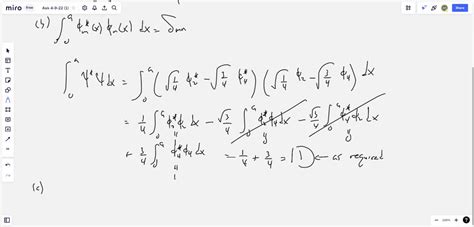 miro Ask 4-9-22 (1)
(b) ∫₀ᵃ φₘ*(x) φₙ(x) dx = δₘₙ
∫₀ᵃ Ψ*Ψ dx = ∫₀ᵃ (√1/4 φ₂* - √3/4 φ₄*) (√1/4 φ₂ - √3/4 φ₄) dx
= 1/4 ∫₀ᵃ φ₂*φ₂ dx - √3/4 ∫₀ᵃ φ₂*φ₄ dx - √3/4 ∫₀ᵃ φ₄*φ₂ dx
+ 3/4 ∫₀ᵃ φ₄*φ₄ dx = 1/4 + 3/4 = 1 ← as required
1
(c)